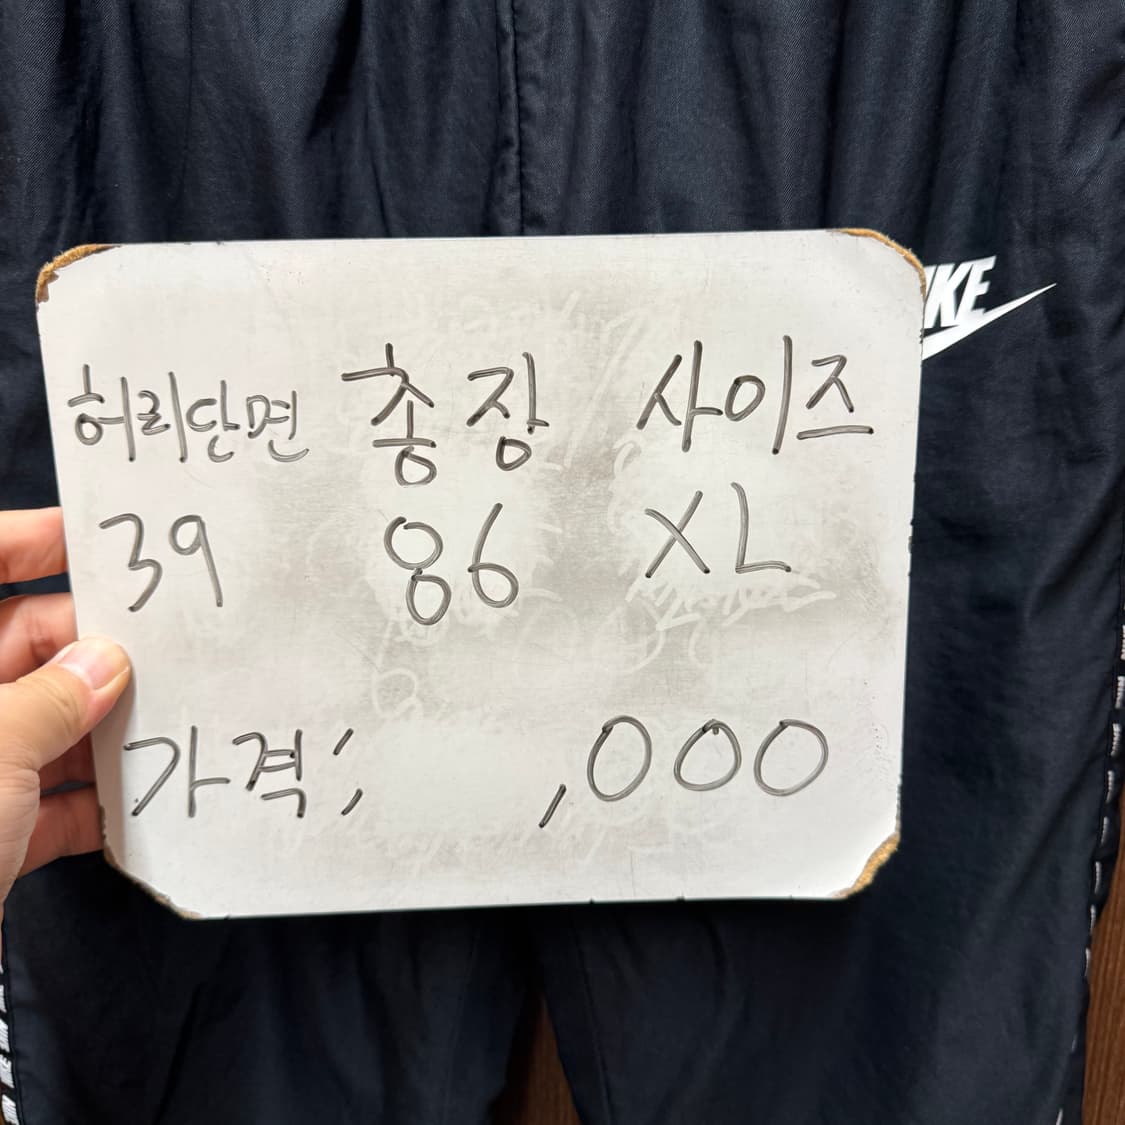 NIKE
허리단면 총장 사이즈
39 86 XL
가격; ,000